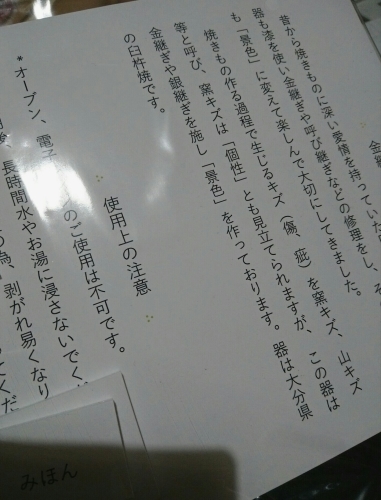 金継
修理をし、そ
昔から焼きものに深い愛情を持っていた
器も漆を使い金継ぎや呼び継ぎなどの修理をし、
も「景色」に変えて楽しんで大切にしてきました。
焼きもの作る過程で生じるキズ（傷、疵）を窯キズ、山キズ
等と呼び、窯キズは「個性」とも見立てられますが、この器は
金継ぎや銀継ぎを施し「景色」を作っております。器は大分県
の臼杵焼です。
使用上の注意
*オーブン、電子 のご使用は不可です。
長時間水やお湯に浸さないでく
の為、剥がれ易くなり
てくだ
みほん